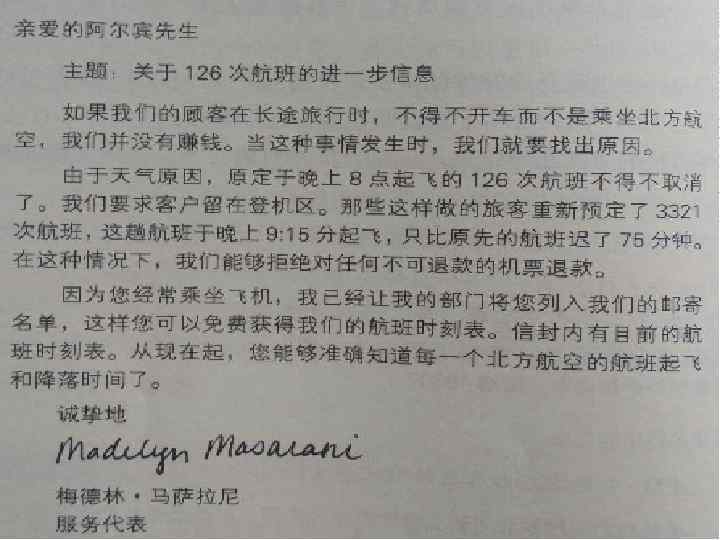 亲爱的阿尔宾先生
主题：关于 126 次航班的进一步信息
如果我们的顾客在长途旅行时，不得不开车而不是乘坐北方航
空，我们并没有赚钱。当这种事情发生时，我们就要找出原因。
由于天气原因，原定于晚上 8 点起飞的 126 次航班不得不取消
了。我们要求客户留在登机区。那些这样做的旅客重新预定了 3321
次航班，这趟航班于晚上 9:15 分起飞，只比原先的航班迟了 75 分钟。
在这种情况下，我们能够拒绝对任何不可退款的机票退款。
因为您经常乘坐飞机，我已经让我的部门将您列入我们的邮寄
名单，这样您可以免费获得我们的航班时刻表。信封内有目前的航
班时刻表。从现在起，您能够准确知道每一个北方航空的航班起飞
和降落时间了。
诚挚地
Madelyn Masarani
梅德林·马萨拉尼
服务代表